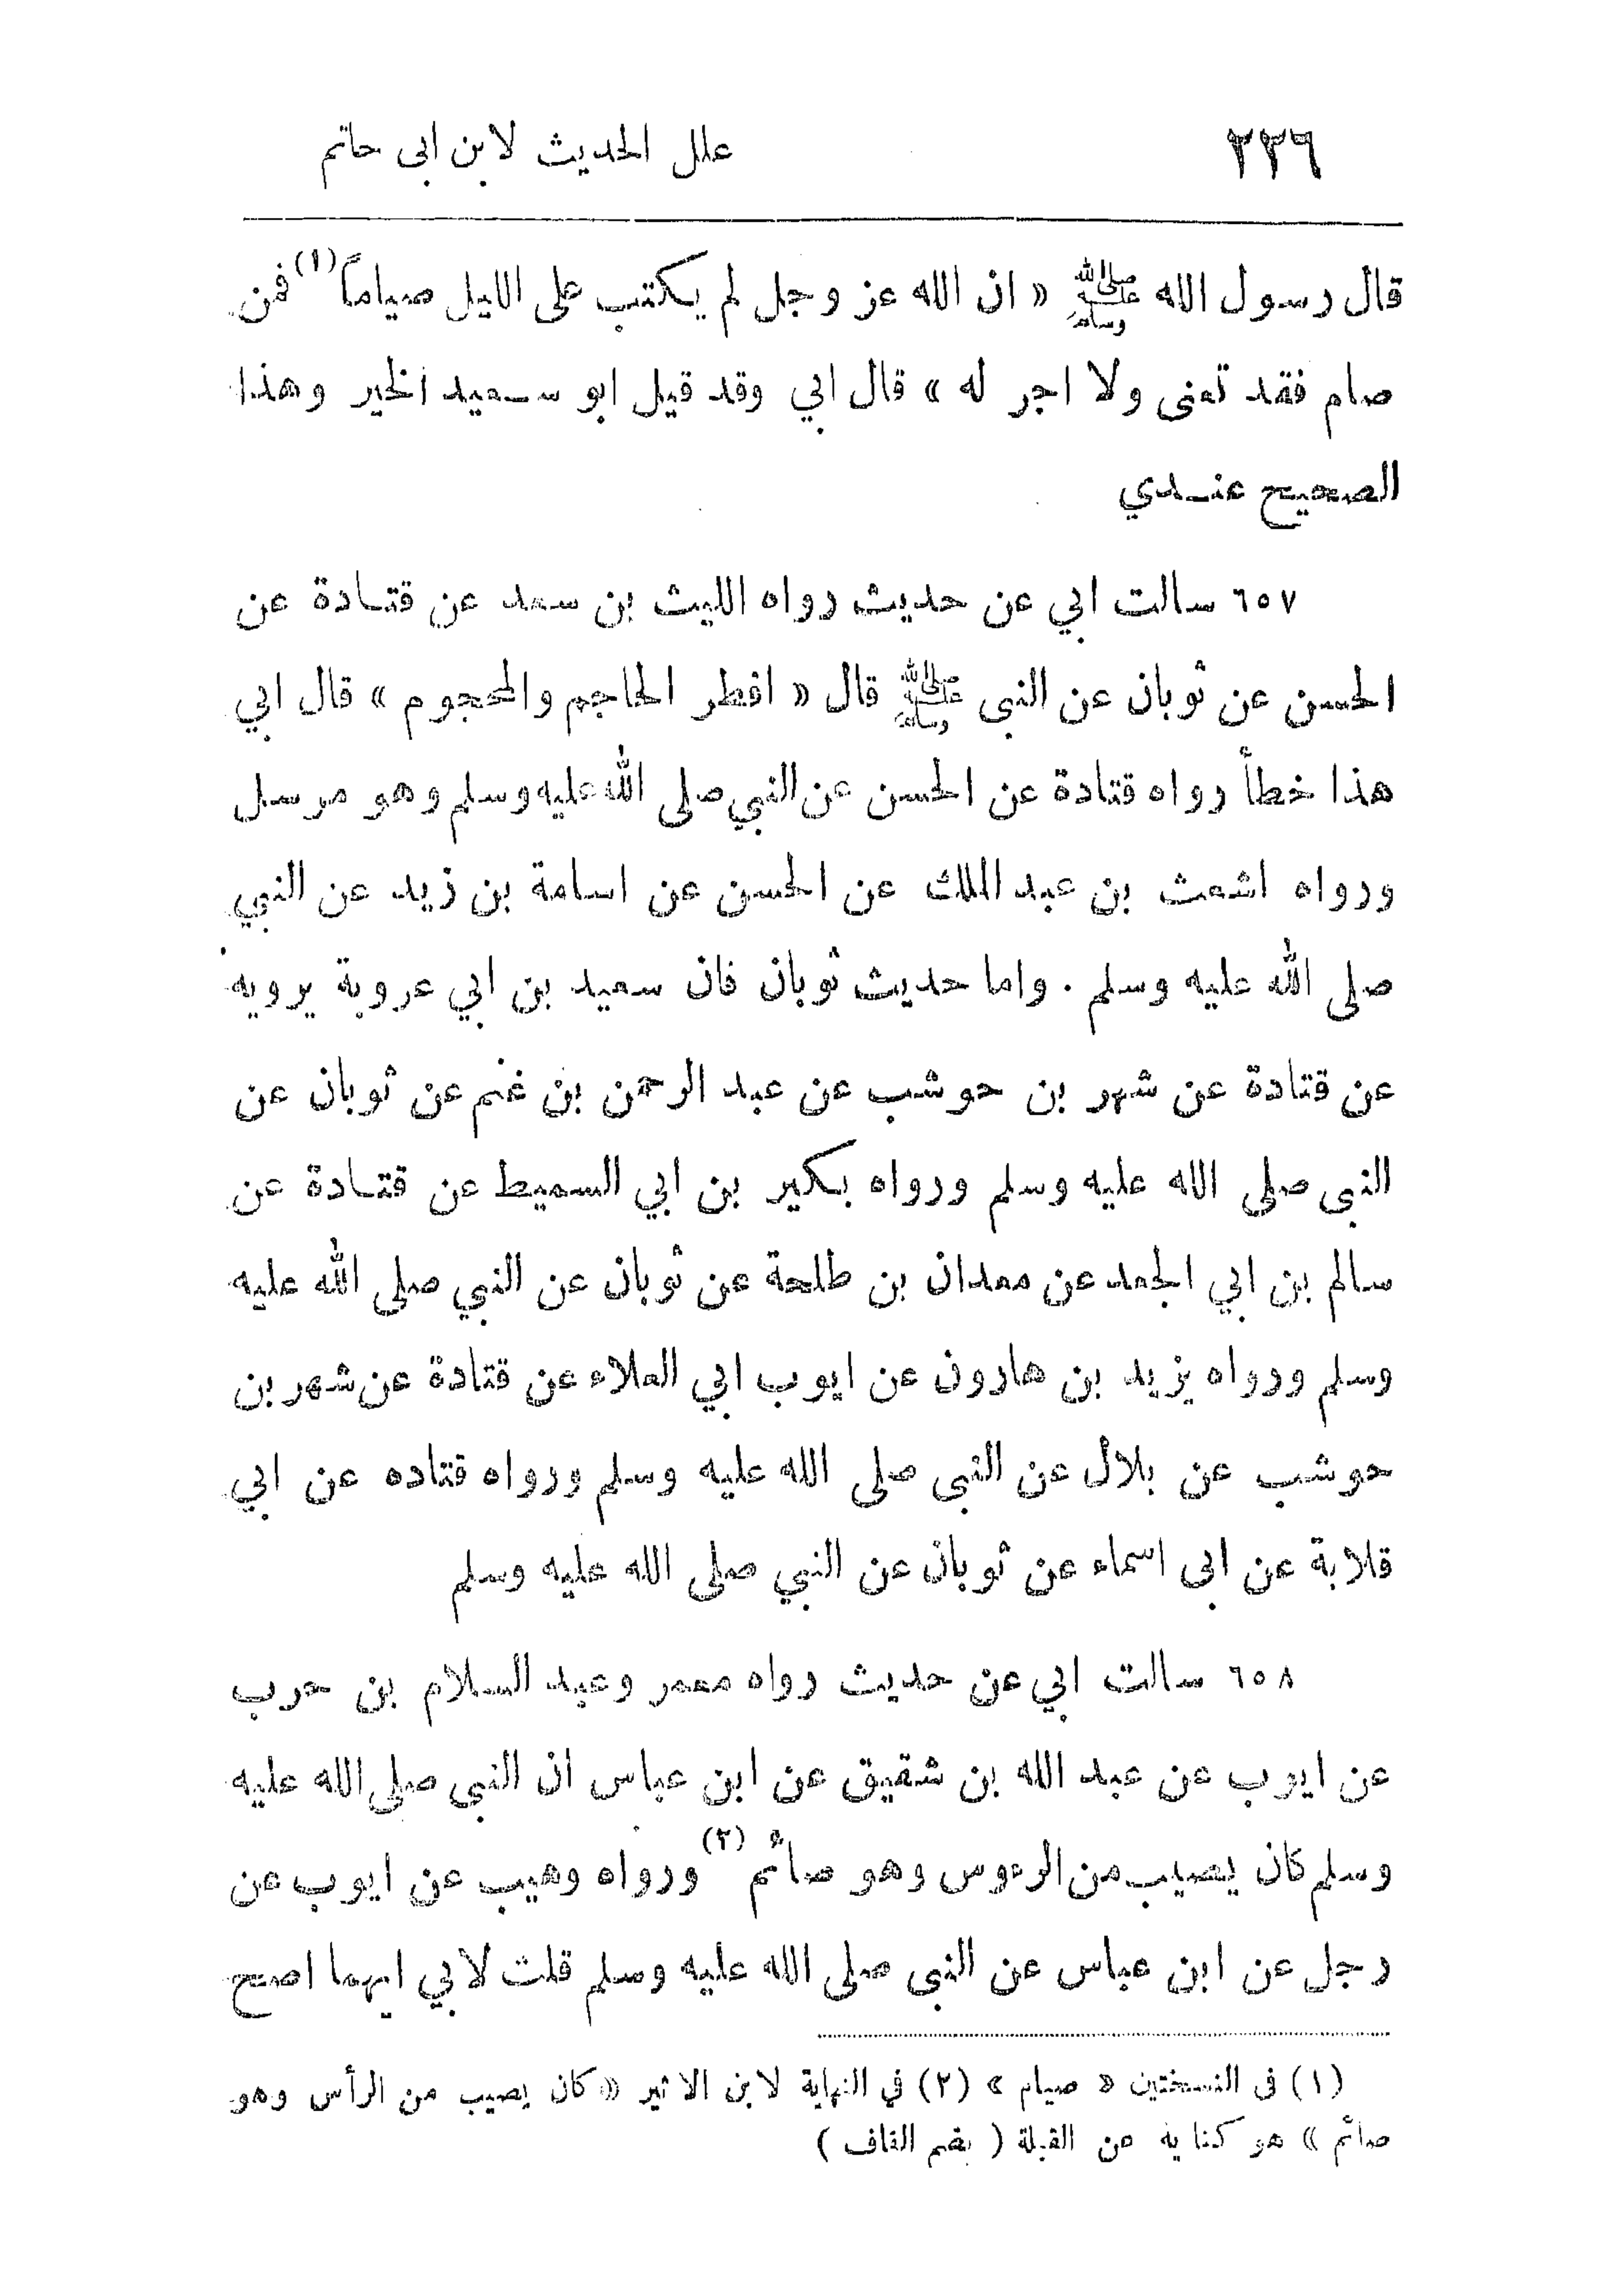 ٢٢٦ علل الحديث لابن ابى حاتم
قال رسول الله ﷺ « ان الله عز وجل لم يكتب على الليل صياماً(١) فمن
صام فقد تعنى ولا اجر له » قال ابي وقد قيل ابو سعيد الخير وهذا
الصحيح عندي
٦٥٧ سالت ابي عن حديث رواه الليث بن سعد عن قتادة عن
الحسن عن ثوبان عن النبى ﷺ قال « افطر الحاجم والمحجوم » قال ابي
هذا خطأ رواه قتادة عن الحسن عن النبي صلى الله عليه وسلم وهو مرسل
ورواه اشعث بن عبد الملك عن الحسن عن اسامة بن زيد عن النبي
صلى الله عليه وسلم . واما حديث ثوبان فان سعيد بن ابي عروبة يرويه
عن قتادة عن شهر بن حوشب عن عبد الرحمن بن غنم عن ثوبان عن
النبى صلى الله عليه وسلم ورواه بكير بن ابي السميط عن قتادة عن
سالم بن ابي الجعد عن معدان بن طلحة عن ثوبان عن النبي صلى الله عليه
وسلم ورواه يزيد بن هارون عن ايوب ابي العلاء عن قتادة عن شهر بن
حوشب عن بلال عن النبى صلى الله عليه وسلم ورواه قتاده عن ابي
قلابة عن ابى اسماء عن ثوبان عن النبي صلى الله عليه وسلم
٦٥٨ سالت ابي عن حديث رواه معمر وعبد السلام بن حرب
عن ايوب عن عبد الله بن شقيق عن ابن عباس ان النبى صلى الله عليه
وسلم كان يصيب من الرءوس وهو صائم (٢) ورواه وهيب عن ايوب عن
رجل عن ابن عباس عن النبى صلى الله عليه وسلم قلت لابي ايهما اصح
(١) فى النسختين « صيام » (٢) في النهاية لابن الاثير « كان يصيب من الرأس وهو
صائم » هو كناية عن القبلة ( بضم القاف )